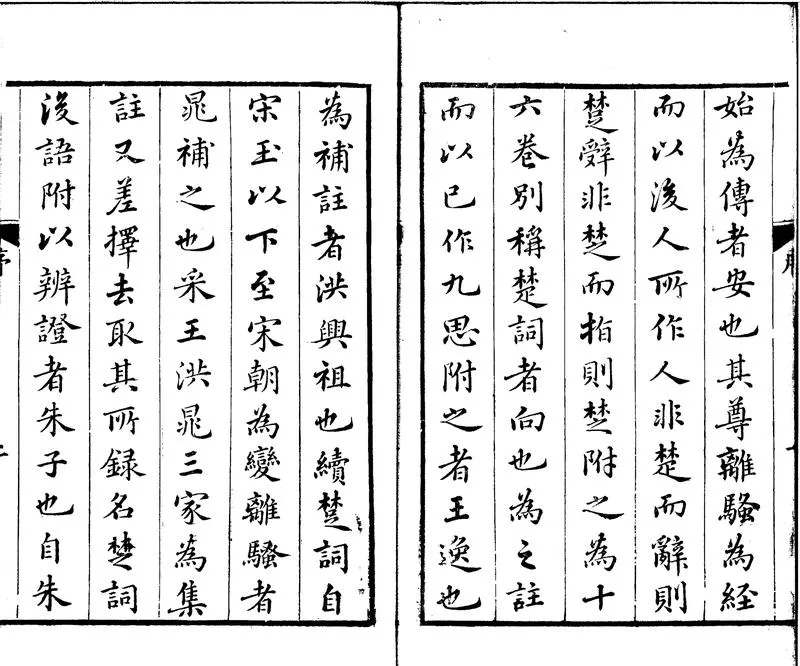 始為傳者安也其尊離騷為經
而以後人所作人非楚而辭則
楚辭非楚而指則楚附之為十
六卷別稱楚詞者向也為之註
而以已作九思附之者王逸也
為補註者洪興祖也續楚詞自
宋玉以下至宋朝為變離騷者
晁補之也采王洪晁三家為集
註又差擇去取其所録名楚詞
後語附以辨證者朱子也自朱
序